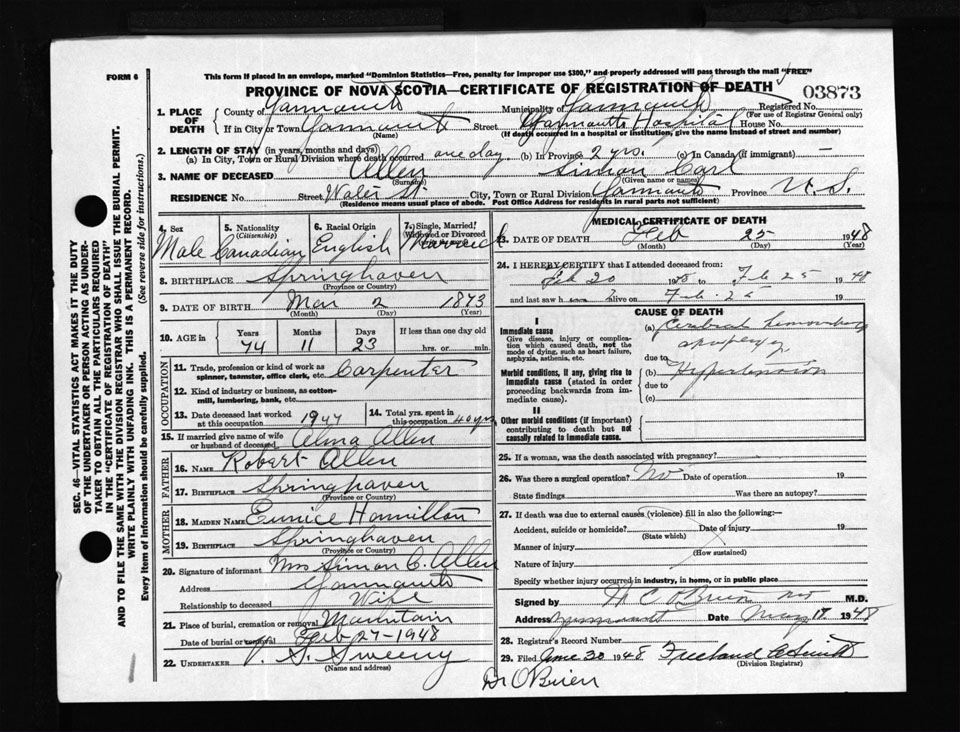 FORM 6
This form if placed in an envelope, marked "Dominion Statistics—Free, penalty for improper use $300," and properly addressed will pass through the mail "FREE"
PROVINCE OF NOVA SCOTIA—CERTIFICATE OF REGISTRATION OF DEATH
03873
Registered No.
(For use of Registrar General only)
1. PLACE OF DEATH
County of Yarmouth Municipality of Yarmouth
If in City or Town Yarmouth Street Yarmouth Hospital House No.
(Name) (If death occurred in a hospital or institution, give the name instead of street and number)
2. LENGTH OF STAY (in years, months and days)
(a) In City, Town or Rural Division where death occurred one day. (b) In Province 2 yrs. (c) In Canada (if immigrant) —
3. NAME OF DECEASED Allen Simon Carl
(Surname) (Given name or names)
RESIDENCE No. Street Water St City, Town or Rural Division Yarmouth Province N.S.
(Residence means usual place of abode. Post Office Address for residents in rural parts not sufficient)
4. Sex
Male
5. Nationality (Citizenship)
Canadian
6. Racial Origin
English
7. Single, Married, Widowed or Divorced
Married
8. BIRTHPLACE Springhaven
(Province or Country)
9. DATE OF BIRTH Mar 2 1873
(Month) (Day) (Year)
10. AGE in Years Months Days If less than one day old
74 11 23 hrs. or min.
OCCUPATION
11. Trade, profession or kind of work as spinner, teamster, office clerk, etc. Carpenter
12. Kind of industry or business, as cotton-mill, lumbering, bank, etc.
13. Date deceased last worked at this occupation 1947
14. Total yrs. spent in this occupation 40 yrs
15. If married give name of wife or husband of deceased Alma Allen
FATHER
16. NAME Robert Allen
17. BIRTHPLACE Springhaven
(Province or Country)
MOTHER
18. MAIDEN NAME Eunice Hamilton
19. BIRTHPLACE Springhaven
(Province or Country)
20. Signature of informant Mrs Simon C. Allen
Address Yarmouth
Relationship to deceased Wife
21. Place of burial, cremation or removal Mountain
Date of burial or removal Feb 27-1948
22. UNDERTAKER V. S. Sweeny
(Name and address)
MEDICAL CERTIFICATE OF DEATH
23. DATE OF DEATH Feb 25 1948
(Month) (Day) (Year)
24. I HEREBY CERTIFY that I attended deceased from:
Feb 20 1948 to Feb 25 1948
and last saw h alive on Feb. 25 19
CAUSE OF DEATH
I
Immediate cause
Give disease, injury or complication which caused death, not the mode of dying, such as heart failure, asphyxia, asthenia, etc.
(a) Cerebral hemorrhage
apoplexy
due to
Morbid conditions, if any, giving rise to immediate cause (stated in order proceeding backwards from immediate cause).
(b) Hypertension
due to
(c)
II
Other morbid conditions (if important) contributing to death but not causally related to immediate cause.
25. If a woman, was the death associated with pregnancy?
26. Was there a surgical operation? No Date of operation 19
State findings Was there an autopsy?
27. If death was due to external causes (violence) fill in also the following:—
Accident, suicide or homicide? Date of injury 19
(State which)
Manner of injury
(How sustained)
Nature of injury
Specify whether injury occurred in industry, in home, or in public place
Signed by H C O'Brien M.D.
Address Yarmouth Date May 17 1948
28. Registrar's Record Number
29. Filed June 30 1948 Freeland
(Division Registrar)
Dr O'Brien
SEC. 46—VITAL STATISTICS ACT MAKES IT THE DUTY
OF THE UNDERTAKER OR PERSON ACTING AS UNDER-
TAKER TO OBTAIN ALL THE PARTICULARS REQUIRED
IN THE "CERTIFICATE OF REGISTRATION OF DEATH"
AND TO FILE THE SAME WITH THE DIVISION REGISTRAR WHO SHALL ISSUE THE BURIAL PERMIT.
WRITE PLAINLY WITH UNFADING INK. THIS IS A PERMANENT RECORD.
Every item of information should be carefully supplied. (See reverse side for instructions.)